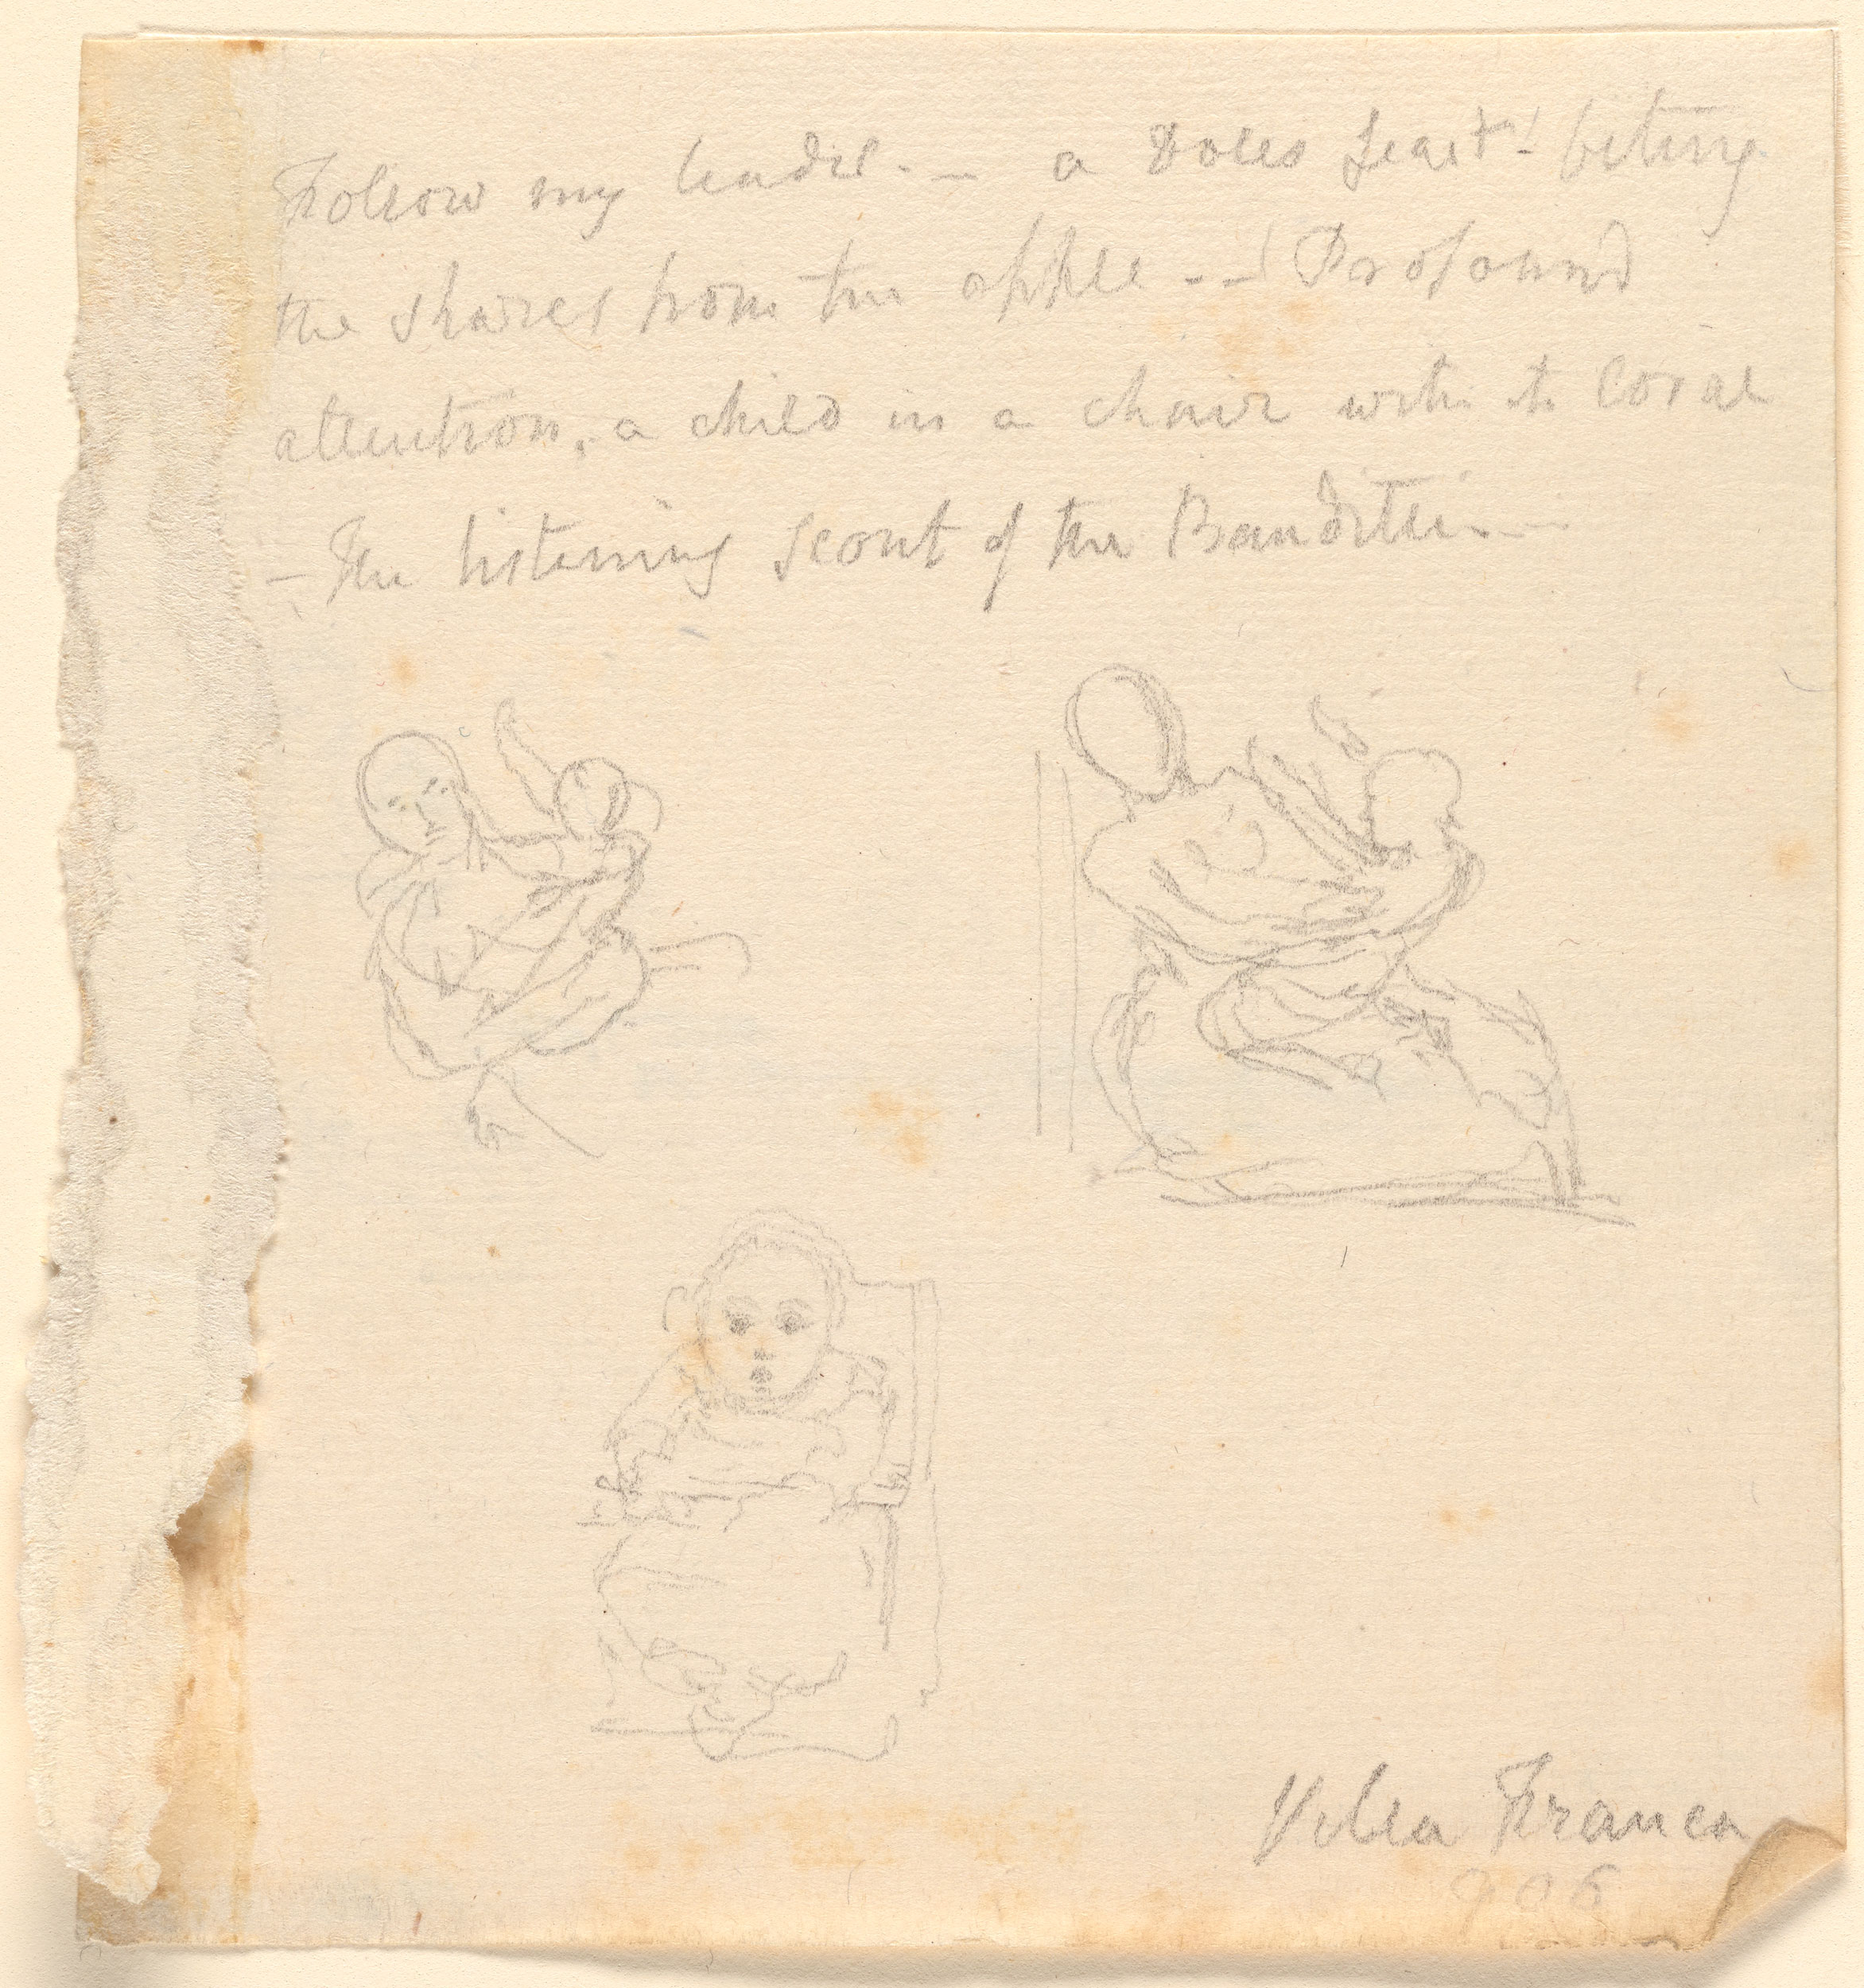 Follow my leader - - a Doles feast! biting
the shares from the apple - - Profound
attention, a child in a chair with its coral
- The listening Scout of the Banditti - -
Villa Franca
906